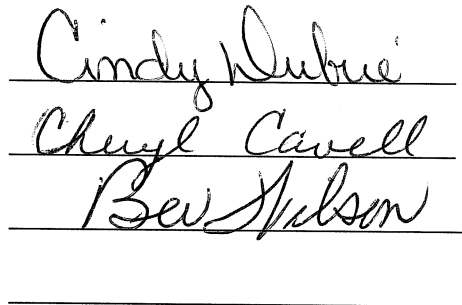 Cindy Dubué
Cheryl Cavell
Bev Wilson